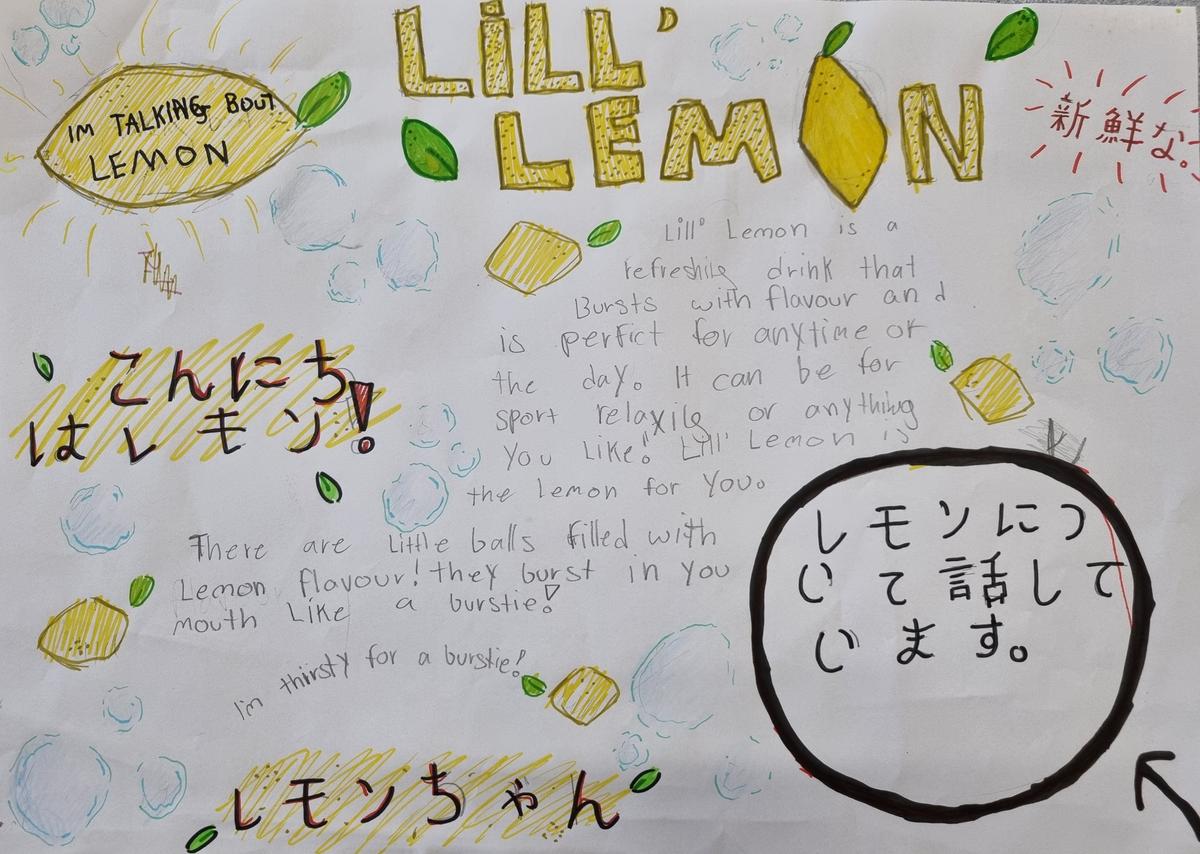 LiLL'
LEMON
IM TALKING BOUT
LEMON
新鮮な。
Lill' Lemon is a
refreshing drink that
Bursts with flavour and
is perfict for anytime of
the day. It can be for
sport relaxing or anything
You Like! Lill' Lemon is
the lemon for You.
こんにち
はレモン!
There are Little balls filled with
Lemon flavour! they burst in you
mouth Like a burstie!
I'm thirsty for a burstie!
レモンにつ
いて話して
います。
レモンちゃん